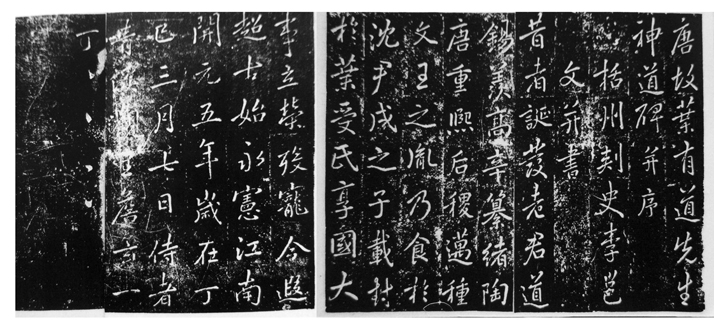 唐故葉有道先生
神道碑并序
括州刺史李邕
文并書
昔者誕發老君道
錫羨高辛纂緒陶
唐重熙后稷邁種
文王之胤乃食於
沈尹戌之子載封
於葉受氏享國大
事立榮歿寵今遐
超古始永憲江南
開元五年歲在丁
巳三月七日侍者
詹玄一
丁丶丶丶